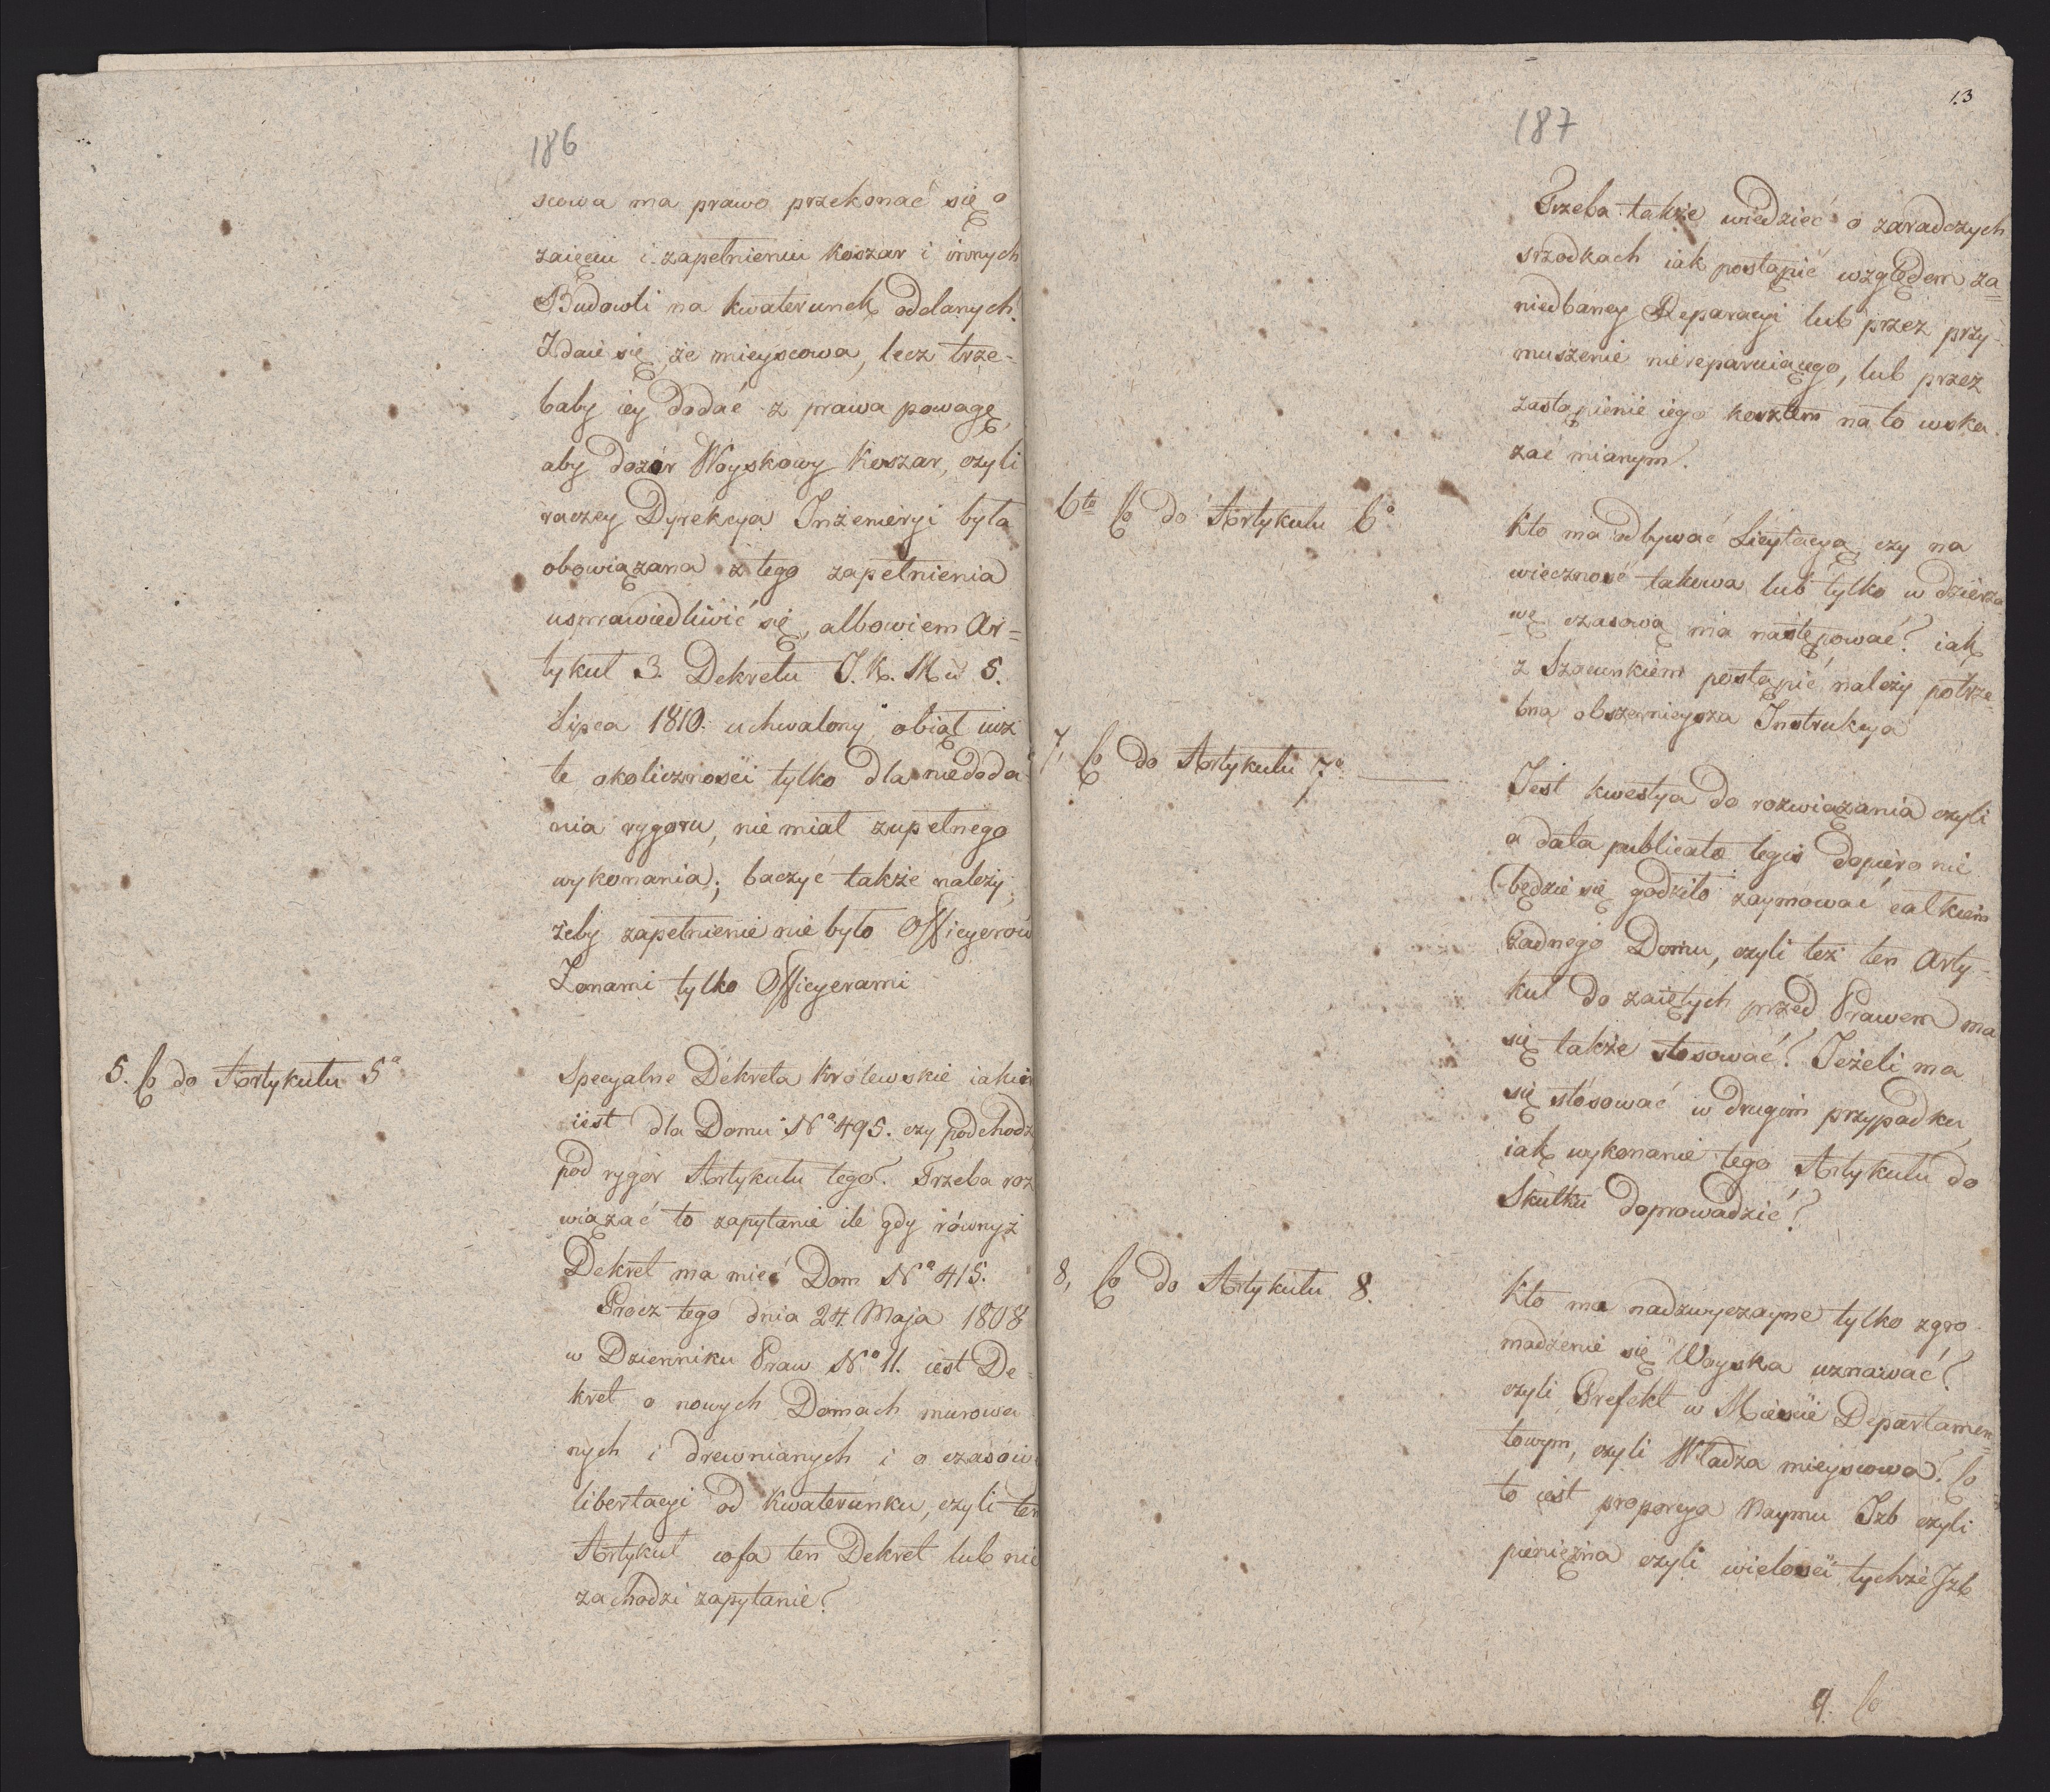 186
scowa ma prawo przekonać się o
zaięciu i zapełnieniu Koszar i innych
Budowli na kwaterunek oddanych.
Zdaie się, że mieyscowa, lecz trze-
baby iey dodać z prawa powagę,
aby dozór Woyskowy Koszar, czyli
raczey Dyrekcya Inżenieryi była
obowiązana z tego zapełnienia
usprawiedliwić się, albowiem Ar=
tykuł 3. Dekretu J. K. M. 5.
Lipca 1810. uchwalony obiął iuż
te okoliczności tylko dla niedoda
nia rygoru, nie miał zupełnego
wykonania; baczyć także należy,
żeby zapełnienie nie było Officyerów
Zonami tylko Officyerami
5. Co do Artykułu 5o
Specyalne Dekreta Królewskie iakie
iest dla Domu No 495. czy podchodz
pod rygór Artykułu tego? Trzeba roz
wiązać to zapytanie ile gdy równyż
Dekret ma mieć Dom No 415.
Procz tego dnia 24. Maja 1808
w Dzienniku Praw No 11. iest De-
kret o nowych Domach murowa
nych i drewnianych i o czasów
libertacyi od Kwaterunku, czyli ten
Artykuł cofa ten Dekret lub nie
zachodzi zapytanie?
13
187
Trzeba także wiedzieć o zaradczych
srzodkach iak postąpić względem za=
niedbaney Reparacyi lub przez przy-
muszenie niereparuiącego, lub przez
zastąpienie iego kosztem na to wska
zać mianym.
6to Co do Artykułu 6o
Kto ma odbywać Licytacyą, czy na
wieczność takowa lub tylko w dzierża
wę czasową ma następować? iak
z Szacunkiem postąpić, należy potrze
bna obszernieysza Instrukcya
7, Co do Artykułu 7o
Jest kwestya do rozwiązania czyli
a data publicatæ legis dopiero nie
będzie się godziło zaymować całkiem
żadnego Domu, czyli też ten Arty-
kuł do zaiętych przed Prawem ma
się także stosować? Jeżeli ma
się stósować w drugim przypadku
iak wykonanie tego Artykułu do
Skutku doprowadzić?
8, Co do Artykułu 8.
Kto ma nadzwyczayne tylko zgro-
madzenie się Woyska uznawać?
czyli Prefekt w Mieście Departamen=
towym, czyli Władza mieyscowa? Co
to iest proporcya Naymu Izb czyli
pieniężna czyli wielości tychże Izb
9. Co